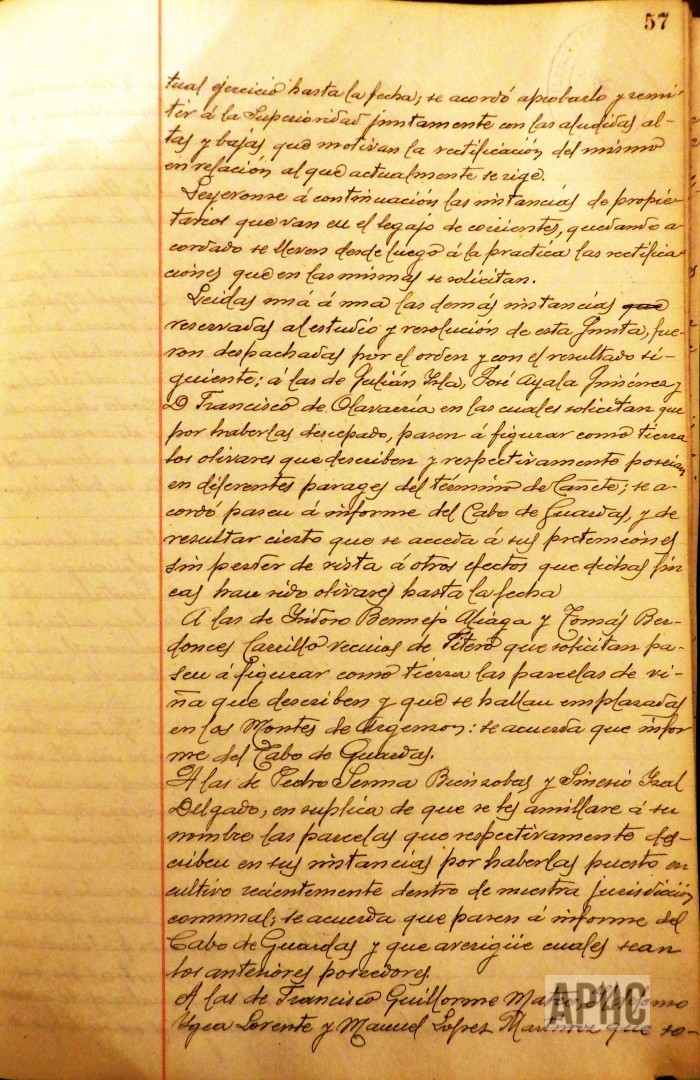 57
tual ejercicio hasta la fecha; se acordó aprobarlo y remi-
tir á la Superioridad juntamente con las aludidas al-
tas y bajas que motivan la rectificación del mismo
en relación al que actualmente se rige.
Leyeronse á continuación las instancias de propie-
tarios que van en el legajo de corrientes, quedando a-
cordado se lleven desde luego á la practica las rectifica-
ciones que en las mismas se solicitan.
Leidas una á una las demás instancias que
reservadas al estudio y resolución de esta Junta, fue-
ron despachadas por el orden y con el resultado si-
guiente: á las de Julián Isla, José Ayala Jiménez y
D Francisco de Olavarría en las cuales solicitan que
por haberlas descepado, pasen á figurar como tierra
los olivares que describen y respectivamente poseían
en diferentes parages del término de Cañete; se a-
cordó pasen á informe del Cabo de Guardas, y de
resultar cierto que se acceda á sus pretenciones
sin perder de vista á otros efectos que dichas fin-
cas han sido olivares hasta la fecha
A las de Isidoro Bermejo Aliaga y Tomás Ber-
donces Carrillo vecinos de Fitero que solicitan pa-
sen á figurar como tierra las parcelas de vi-
ña que describen y que se hallan emplazadas
en los Montes de Argenzon: se acuerda que infor-
me del Cabo de Guardas.
A las de Pedro Senna Bienzobas y Sinesio Gal
Delgado, en suplica de que se les amillare á su
nombre las parcelas que respectivamente des-
criben en sus instancias por haberlas puesto en
cultivo recientemente dentro de nuestra jurisdicción
comunal; se acuerda que pasen á informe del
Cabo de Guardas y que averigüe cuales sean
los anteriores poseedores.
A las de Francisco Guillorme Mateo, Ildefonso
Ygea Lorente y Manuel Lopez Martinez que so-
APHC